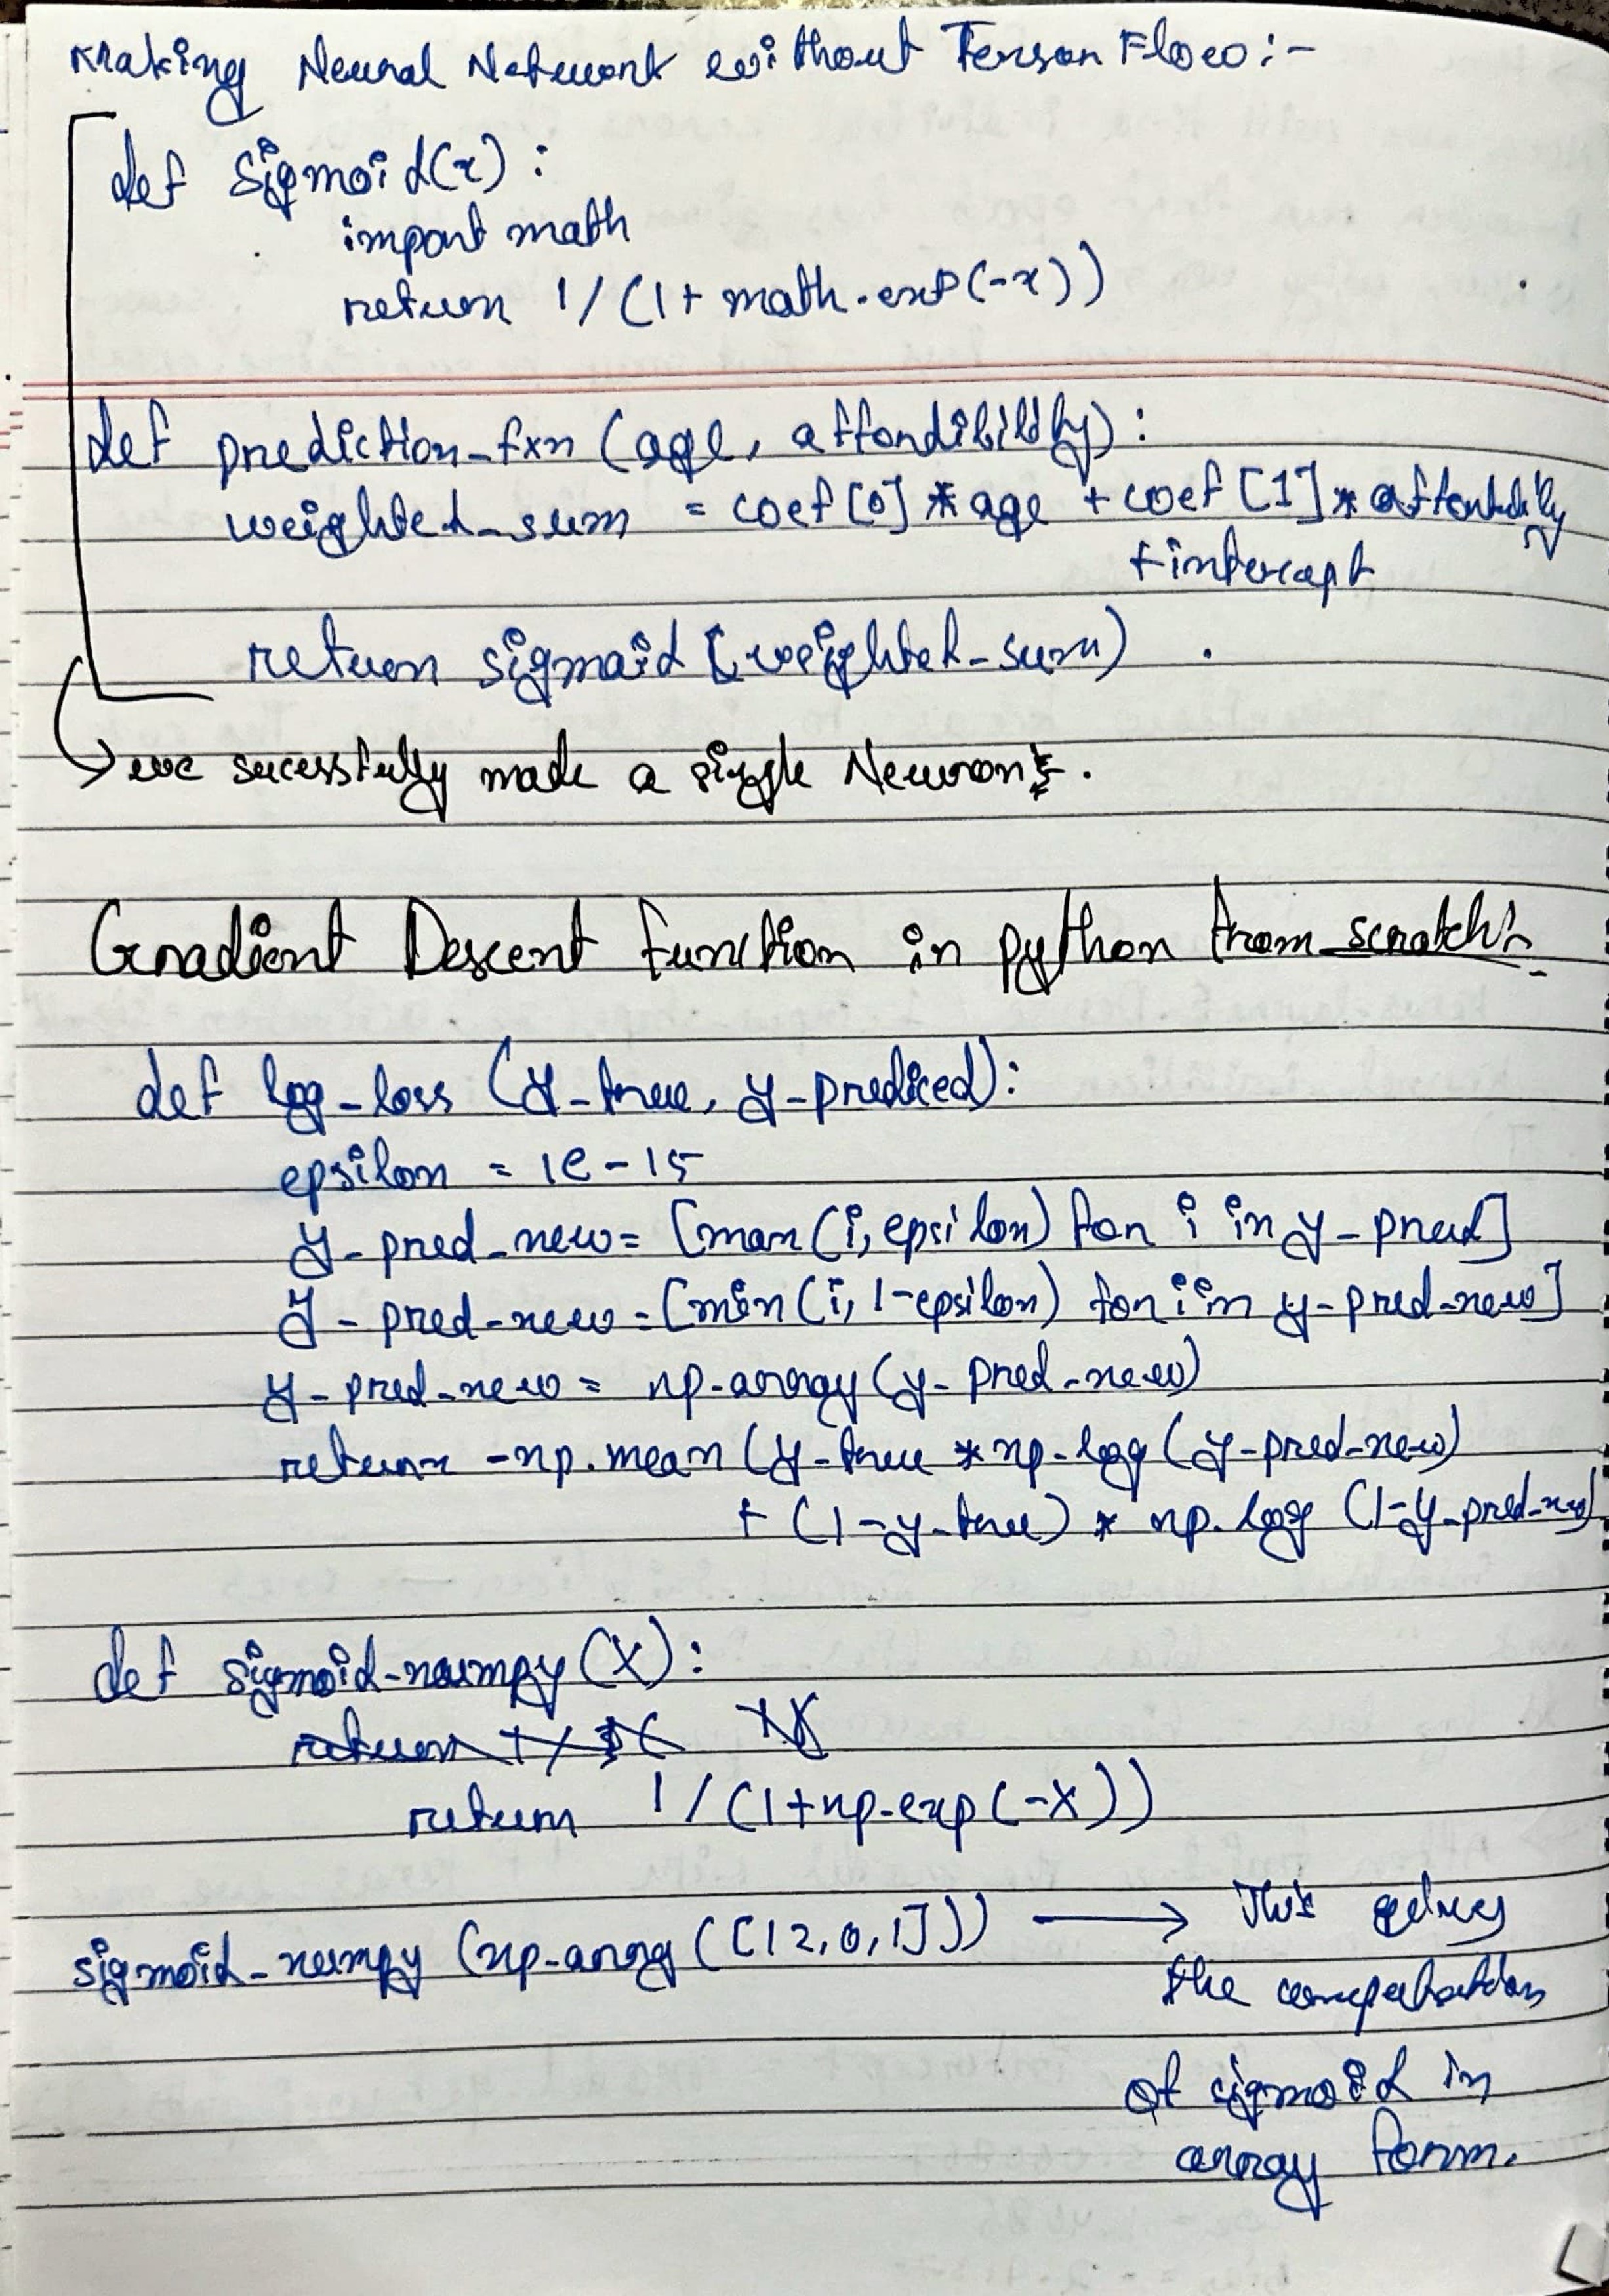 Making Neural Network without TensonFlow:-
def sigmoid(x):
import math
return 1/(1+ math.exp(-x))
def prediction_fxn (age, affordibility):
weighted_sum = coef[0]*age + coef[1]*affordibility
+intercept
return sigmoid (weighted_sum).
→ we sucessfully made a single Neuron.
Gradient Descent function in python from scratch:-
def log_loss (y_true, y_prediced):
epsilon = 1e-15
y_pred_new= [max(i,epsilon) for i in y_pred]
y_pred_new=[min(i, 1-epsilon) for i in y_pred_new]
y_pred_new= np.array(y_pred_new)
return -np.mean (y_true *np.log(y_pred_new)
+ (1-y_true) * np.log (1-y_pred_new)
def sigmoid_numpy(X):
return 1/
return 1/(1+np.exp(-X))
sigmoid_numpy (np.array([12,0,1])) → This gives
the computation
of sigmoid in
array form.